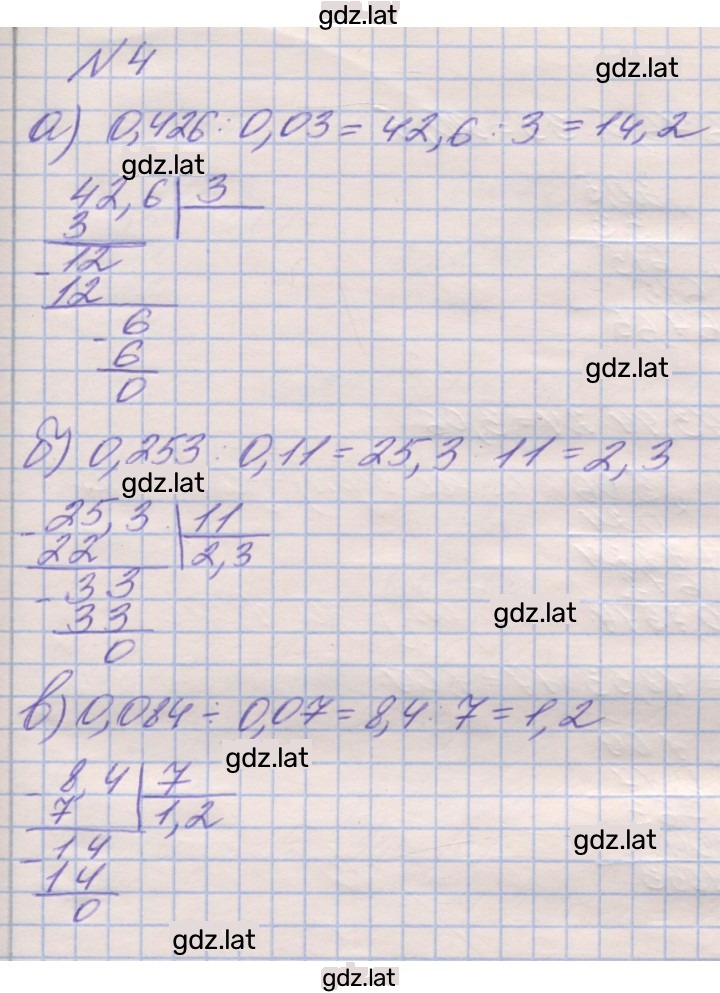 gdz.lat
N4
gdz.lat
а) 0,426 : 0,03 = 42,6 : 3 = 14,2
gdz.lat
42,6 3
3
- 12
12
- 6
6
gdz.lat
0
б) 0,253 : 0,11 = 25,3 : 11 = 2,3
gdz.lat
- 25,3 11
22 2,3
- 33
gdz.lat
33
0
в) 0,084 ÷ 0,07 = 8,4 : 7 = 1,2
gdz.lat
- 8,4 7
7 1,2
- 14
gdz.lat
14
0
gdz.lat
gdz.lat